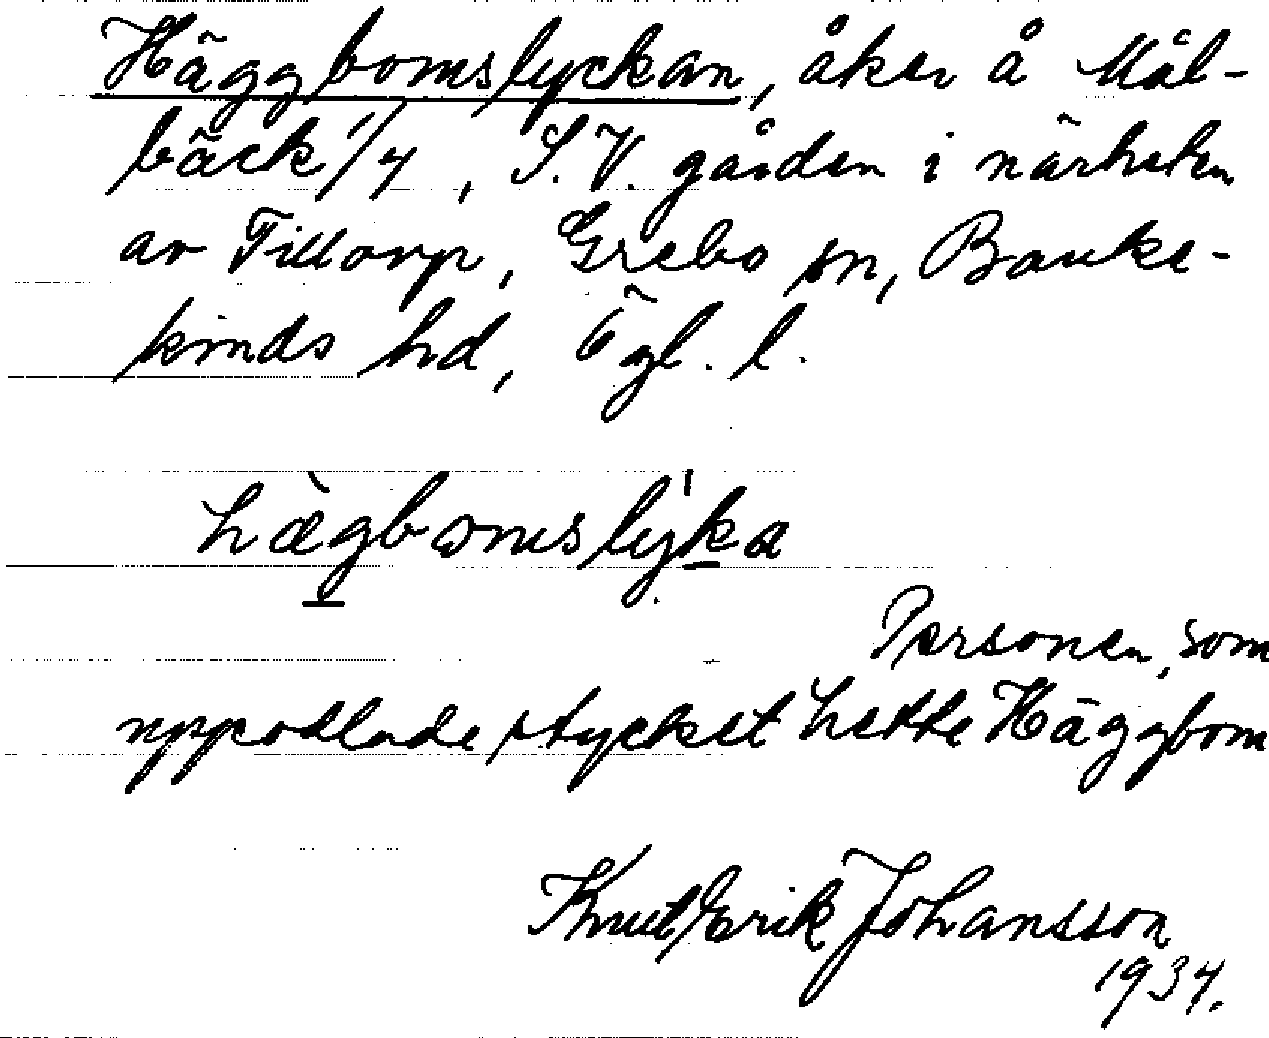 Häggbomslyckan, åker å Mål-
bäck 1/4, S.V. gården i närheten
av Tillorp, Grebo sn, Banke-
kinds hd, Ögl. l.
hægbomslyka
Personen, som
uppodlade stycket hette Häggbom
Knut Erik Johansson
1934.